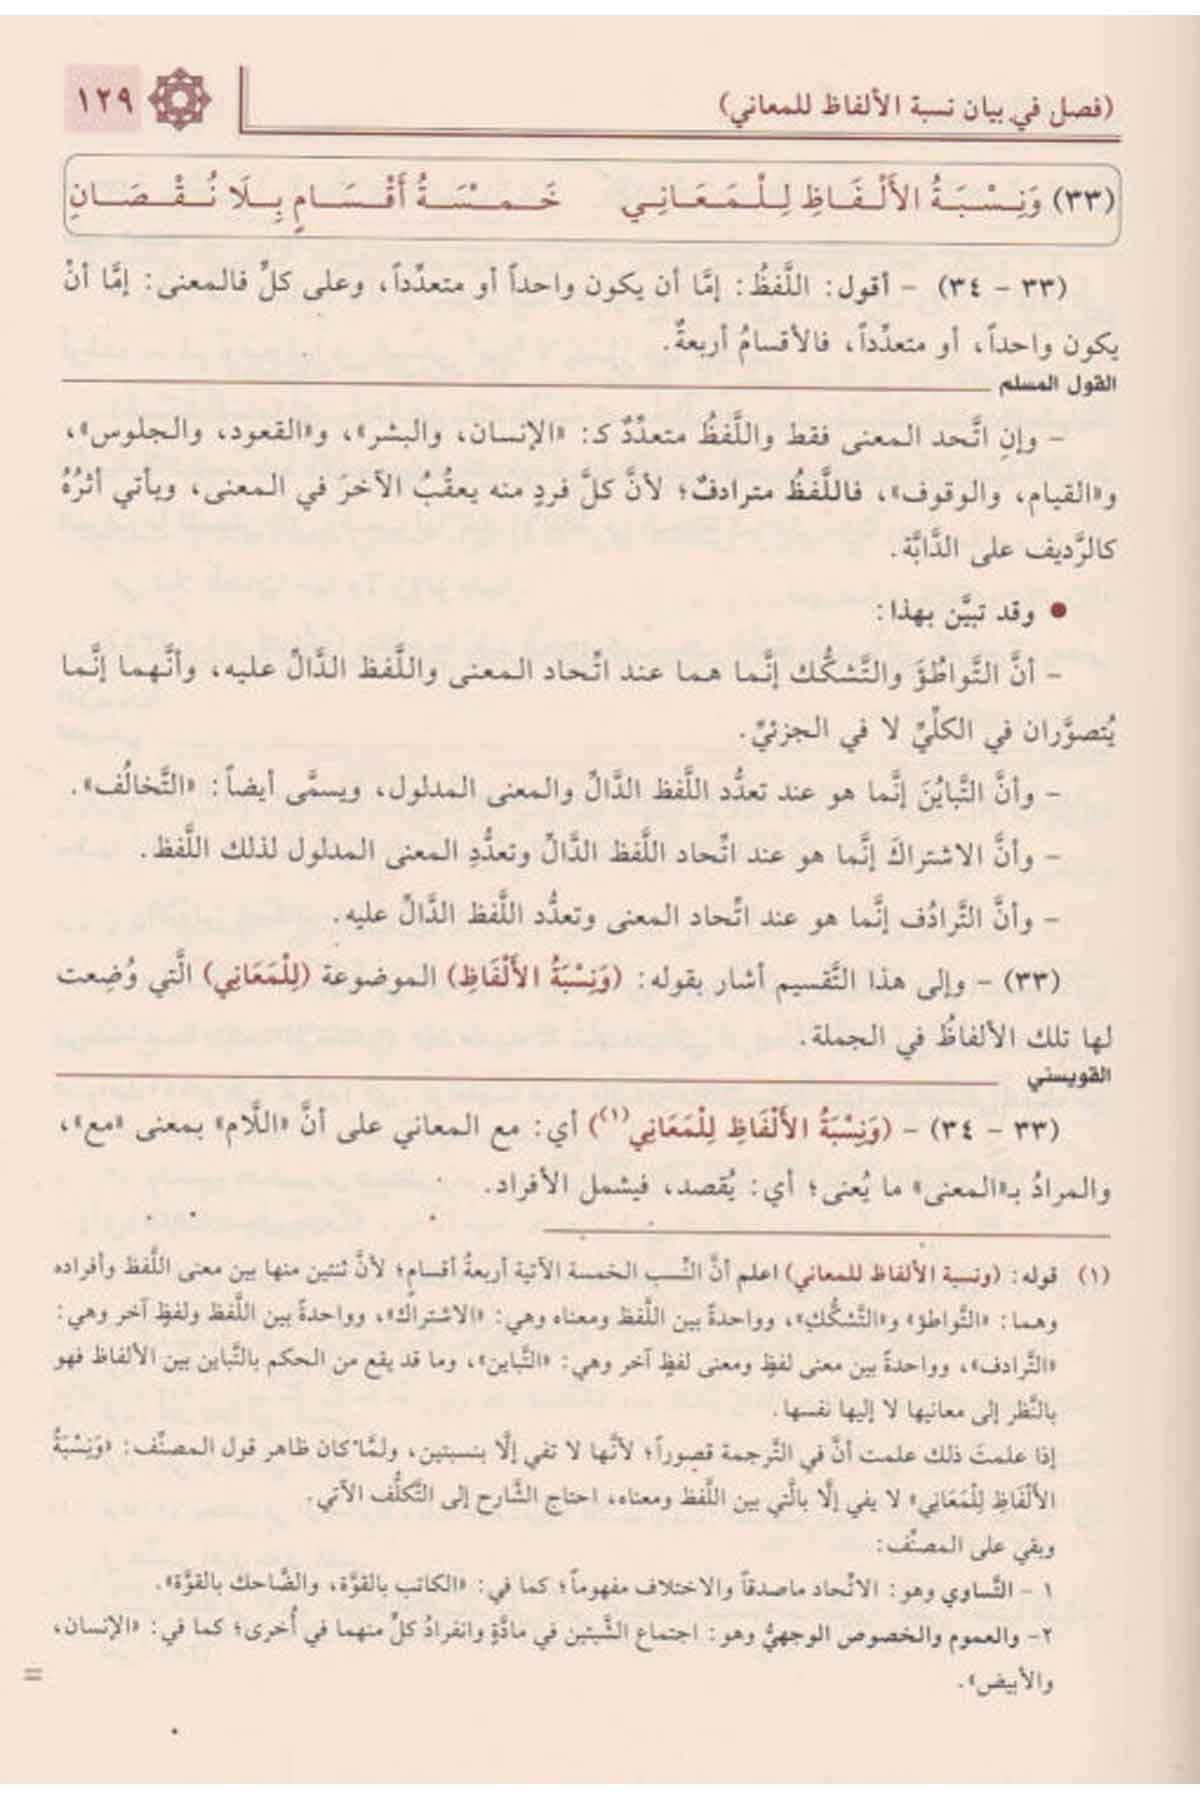 (فصل في بيان نسبة الألفاظ للمعاني)
١٢٩
(٣٣) وَنِسْبَةُ الأَلْفَاظِ لِلْمَعَانِي خَمْسَةُ أَقْسَامٍ بِلَا نُقْصَانِ
(٣٣ - ٣٤) - أقول: اللَّفظُ: إمَّا أن يكون واحداً أو متعدِّداً، وعلى كلٍّ فالمعنى: إمَّا أنْ
يكون واحداً، أو متعدِّداً، فالأقسامُ أربعةٌ.
القول المسلم
- وإنِ اتَّحد المعنى فقط واللَّفظُ متعدِّدٌ كـ: «الإنسان، والبشر»، و«القعود، والجلوس»،
و«القيام، والوقوف»، فاللَّفظُ مترادفٌ؛ لأنَّ كلَّ فردٍ منه يعقُبُ الآخرَ في المعنى، ويأتي أثرُهُ
كالرَّديف على الدَّابَّة.
● وقد تبيَّن بهذا:
- أنَّ التَّواطُؤَ والتَّشكُّك إنَّما هما عند اتِّحاد المعنى واللَّفظ الدَّالِّ عليه، وأنَّهما إنَّما
يُتصوَّران في الكلِّيِّ لا في الجزئيِّ.
- وأنَّ التَّبايُنَ إنَّما هو عند تعدُّد اللَّفظ الدَّالِّ والمعنى المدلول، ويسمَّى أيضاً: «التَّخالُف».
- وأنَّ الاشتراكَ إنَّما هو عند اتِّحاد اللَّفظ الدَّالِّ وتعدُّدِ المعنى المدلول لذلك اللَّفظ.
- وأنَّ التَّرادُف إنَّما هو عند اتِّحاد المعنى وتعدُّد اللَّفظ الدَّالِّ عليه.
(٣٣) - وإلى هذا التَّقسيم أشار بقوله: (وَنِسْبَةُ الأَلْفَاظِ) الموضوعة (لِلْمَعَانِي) الَّتي وُضِعت
لها تلك الألفاظُ في الجملة.
القويسني
(٣٣ - ٣٤) - (وَنِسْبَةُ الأَلْفَاظِ لِلْمَعَانِي(١)) أي: مع المعاني على أنَّ «اللَّام» بمعنى «مع»،
والمرادُ بـ«المعنى» ما يُعنى؛ أي: يُقصد، فيشمل الأفراد.
(١) قوله: (ونسبة الألفاظ للمعاني) اعلم أنَّ النِّسب الخمسة الآتية أربعةُ أقسامٍ؛ لأنَّ ثنتين منها بين معنى اللَّفظ وأفراده
وهما: «التَّواطؤ» و«التَّشكُّك»، وواحدةً بين اللَّفظ ومعناه وهي: «الاشتراك»، وواحدةً بين اللَّفظ ولفظٍ آخر وهي:
«التَّرادف»، وواحدةً بين معنى لفظٍ ومعنى لفظٍ آخر وهي: «التَّباين»، وما قد يقع من الحكم بالتَّباين بين الألفاظ فهو
بالنَّظر إلى معانيها لا إليها نفسها.
إذا علمتَ ذلك علمت أنَّ في التَّرجمة قصوراً؛ لأنَّها لا تفي إلَّا بنسبتين، ولمَّا كان ظاهر قول المصنِّف: «وَنِسْبَةُ
الأَلْفَاظِ لِلْمَعَانِي» لا يفي إلَّا بالَّتي بين اللَّفظ ومعناه، احتاج الشَّارح إلى التَّكلُّف الآتي.
وبقي على المصنِّف:
١ - التَّساوي وهو: الاتِّحاد ماصدقاً والاختلاف مفهوماً؛ كما في: «الكاتب بالقوَّة، والضَّاحك بالقوَّة».
٢- والعموم والخصوص الوجهيُّ وهو: اجتماع الشَّيئين في مادَّةٍ وانفرادُ كلٍّ منهما في أُخرى؛ كما في: «الإنسان،
والأبيض».
=